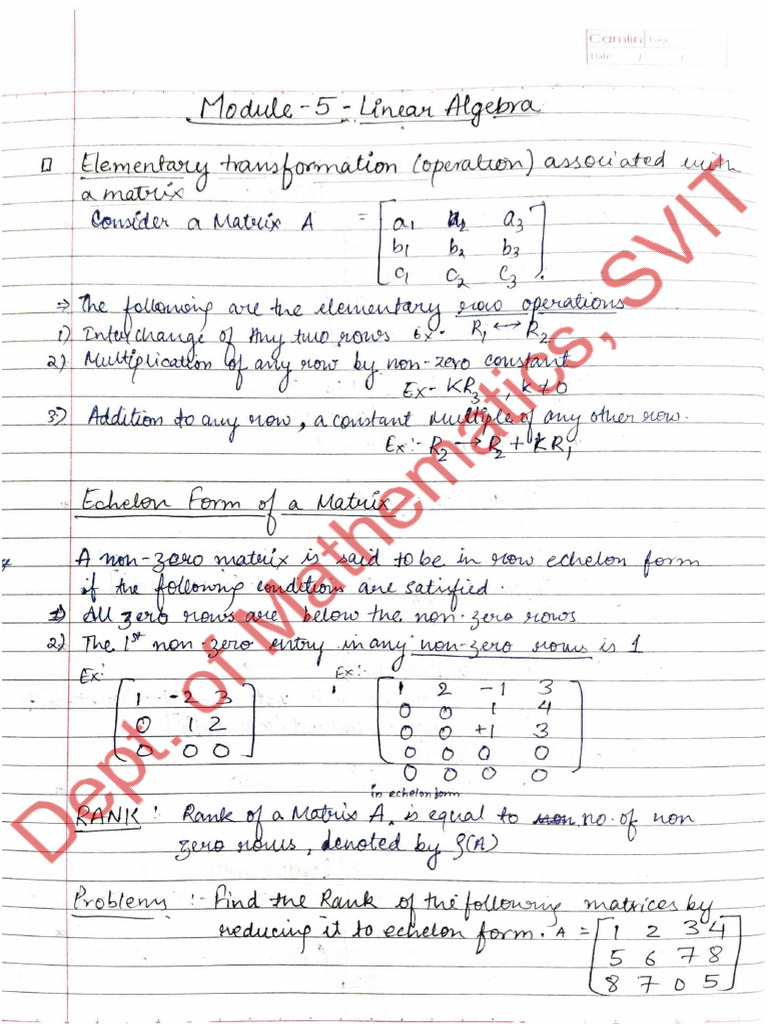 Camlin Page
Date / /
Module-5-Linear Algebra
Elementary transformation (operation) associated with
a matrix
Consider a Matrix A = [ a1 a2 a3
b1 b2 b3
c1 c2 c3 ]
⇒ The following are the elementary row operations
1) Interchange of Any two rows Ex- R1 ↔ R2
2) Multiplication of any row by non-zero constant
Ex- KR3 , K≠0
3) Addition to any row, a constant multiple of any other row.
Ex:- R2 → R2 + KR1
Echelon Form of a Matrix
* A non-zero matrix is said to be in row echelon form
if the following conditions are satisfied.
1) All zero rows are below the non-zero rows
2) The 1st non-zero entry in any non-zero rows is 1
Ex: Ex:-
[ 1 -2 3
0 1 2
0 0 0 ]
[ 1 2 -1 3
0 0 1 4
0 0 +1 3
0 0 0 0
0 0 0 0 ]
in echelon form
RANK : Rank of a Matrix A, is equal to no. of non
zero rows, denoted by ρ(A)
Problems :- Find the Rank of the following matrices by
reducing it to echelon form. A = [ 1 2 3 4
5 6 7 8
8 7 0 5 ]
Dept. of Mathematics, SVIT